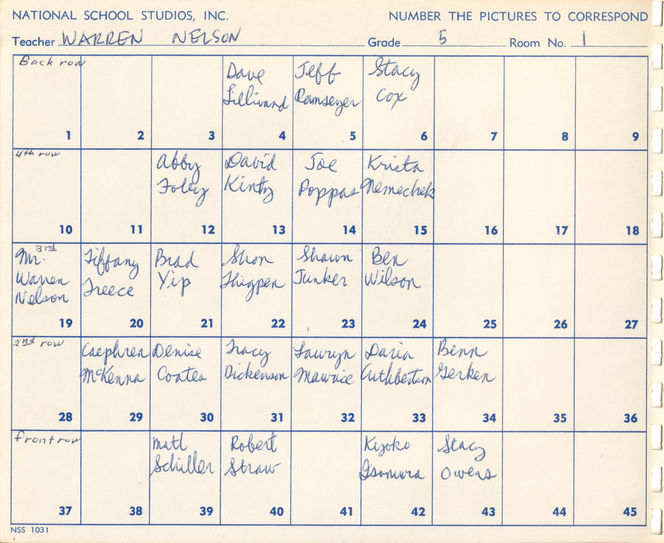 NATIONAL SCHOOL STUDIOS, INC. NUMBER THE PICTURES TO CORRESPOND
Teacher WARREN NELSON Grade 5 Room No. 1
Back row
Dave Jeff Stacy
Ramseyer Cox
1 2 3 4 5 6 7 8 9
4th row
Abby David Joe Krista
Foley Kintz Poppas Nemechek
10 11 12 13 14 15 16 17 18
3rd
Mr. Tiffany Brad Shon Shawn Ben
Warren Treece Yip Thigpen Junker Wilson
Nelson
19 20 21 22 23 24 25 26 27
2nd row
Caephren Denise Tracy Lauryn Daria Benn
McKenna Coates Dickenson Maurice Cuthbertson Gerken
28 29 30 31 32 33 34 35 36
front row
Matt Robert Kiyoko Stacy
Schiller Straw Isomura Owens
37 38 39 40 41 42 43 44 45
NSS 1031